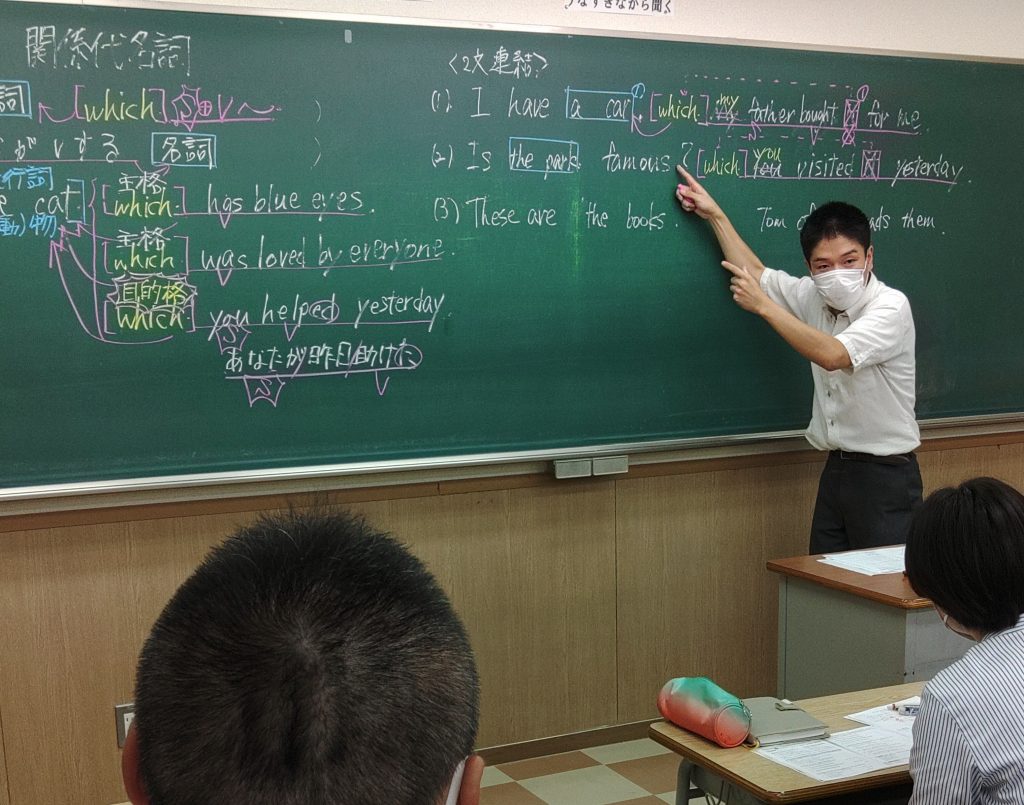 うなずきながら聞く
関係代名詞
詞 [which] S+V〜
がVする 名詞
行詞
cat
動)物
主格
[which] has blue eyes.
主格
[which] was loved by everyone.
目的格
[which] you helped yesterday.
S
あなたが昨日助けた
S V
<2文連結>
(1) I have a car. [which] my father bought for me.
(2) Is the park famous? [which] you visited yesterday.
(3) These are the books. Tom them.